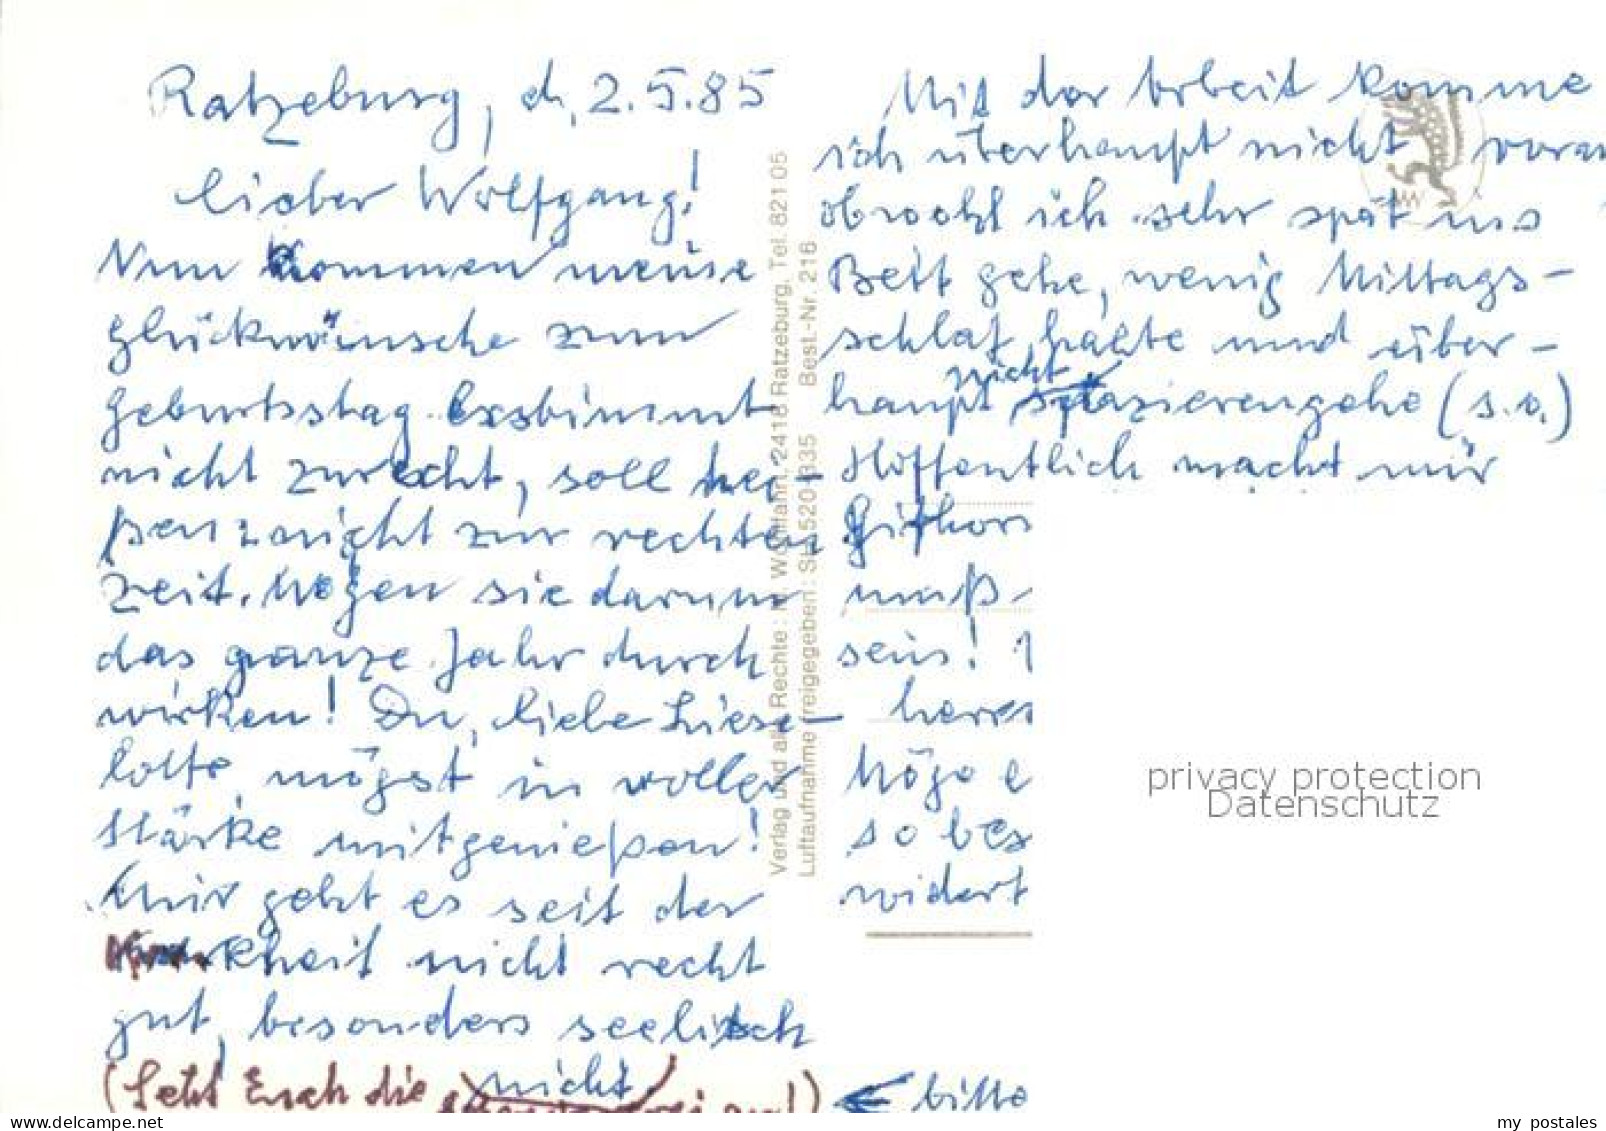 Ratzeburg, d. 2.5.85
Lieber Wolfgang!
Nun kommen meine
Glückwünsche zum
Geburtstag bestimmt
nicht zurecht, soll hei-
ßen: nicht zur rechten
Zeit. Mögen sie darum
das ganze Jahr durch
wirken! Du, liebe Liese-
lotte, mögst in voller
Stärke mitgenießen!
Mir geht es seit der
Krankheit nicht recht
gut, besonders seelisch
nicht.
(Seht Euch die
bitte
Mit der Arbeit komme
ich überhaupt nicht voran
obwohl ich sehr spät ins
Bett gehe, wenig Mittags-
schlaf halte und über-
haupt nicht spazierengehe (s.o.)
Hoffentlich macht mir
Gifhor
maß-
sein!
herrs
Möge e
so bes
widert
Verlag und alle Rechte: M. Wohlfahrt, 2418 Ratzeburg, Tel. 821 05
Luftaufnahme freigegeben: SH 520-335 Best.-Nr. 216
privacy protection
Datenschutz
www.mypostales.de
my postales